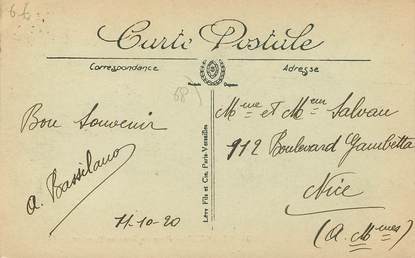 66
Carte Postale
Correspondance
Adresse
68
Bon Souvenir
A. Bassilano
11-10-20
Lévy Fils et Cie, Paris-Versailles
Mme et Mr Salvan
112 Boulevard Gambetta
Nice
(A. Mmes)